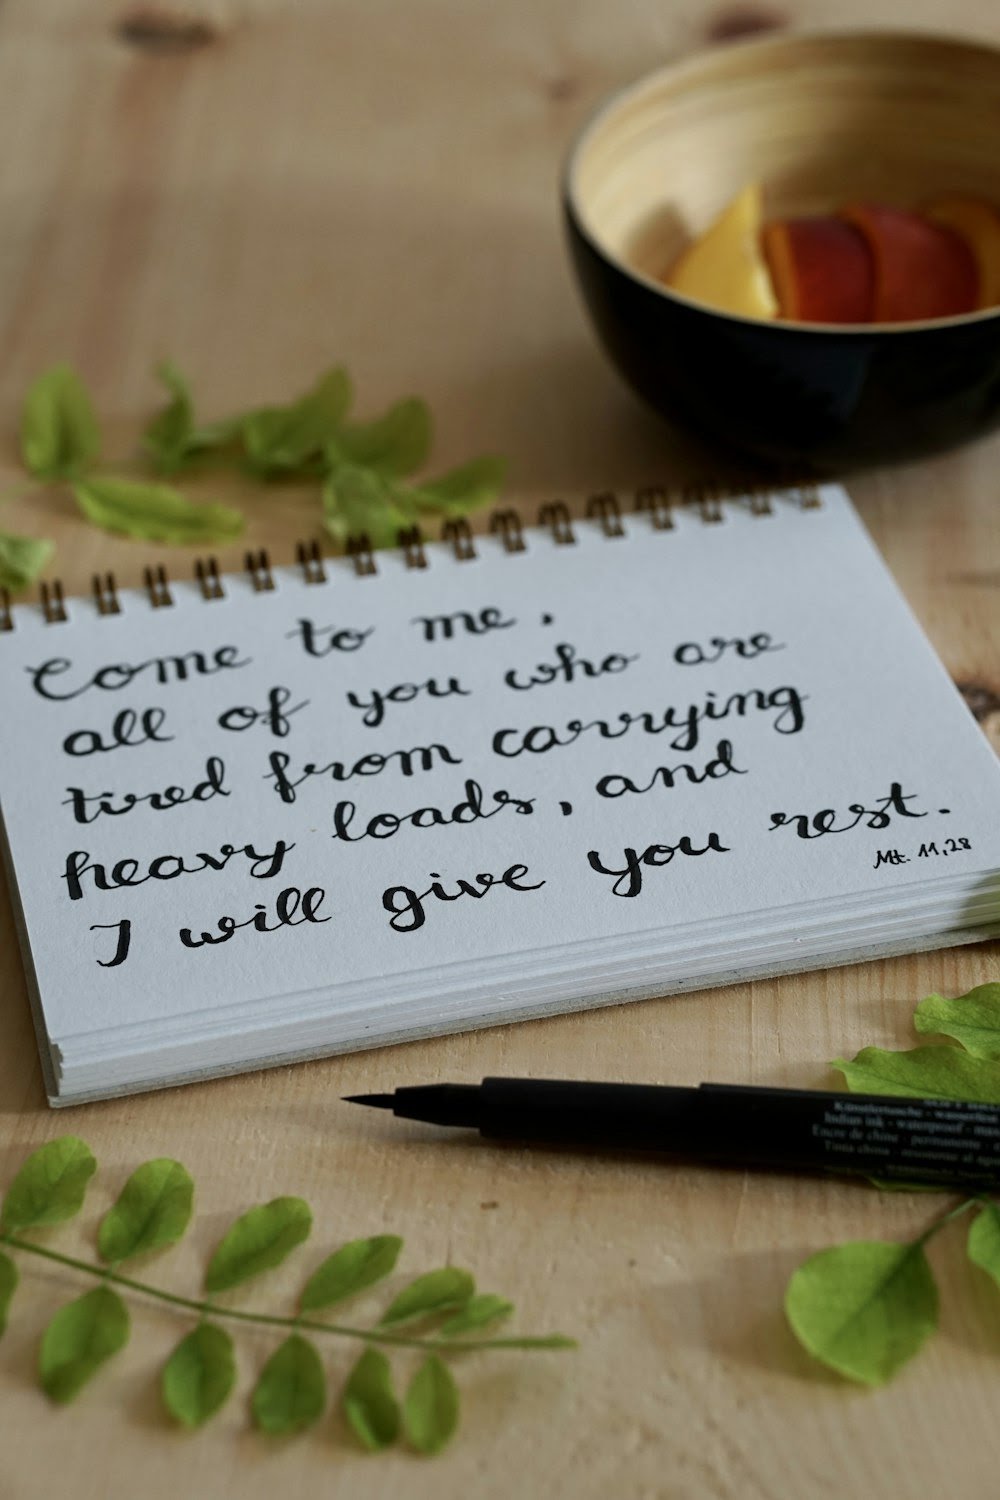 Come to me,
all of you who are
tired from carrying
heavy loads, and
I will give you rest.
Mt. 11,28
Indian ink - waterproof
Encre de chine - permanente